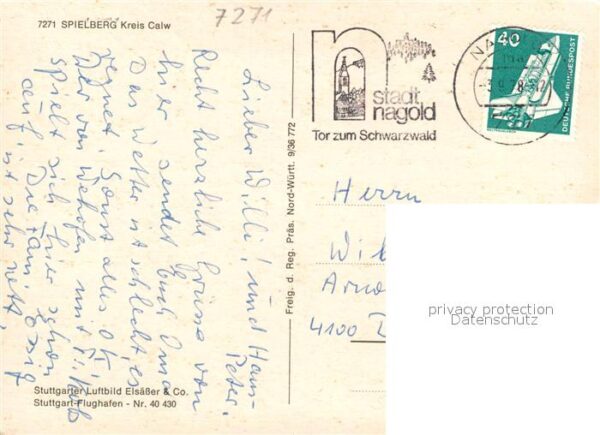 7271
7271 SPIELBERG Kreis Calw
Lieber Willi! und Hans-
Peter.
Recht herzliche Grüsse von
hier sendet Euch Oma
Das Wetter ist schlecht, es
regnet. Sonst alles o.k.
Der von
spielt sich hier schon
auf. Die Familie
ist sehr nett.
Stuttgarter Luftbild Elsäßer & Co.
Stuttgart-Flughafen - Nr. 40 430
Freig. d. Reg. Präs. Nord-Württ. 9/36 772
n
stadt
nagold
Tor zum Schwarzwald
40
DEUTSCHE BUNDESPOST
Herrn
Wil
4100 D
privacy protection
Datenschutz